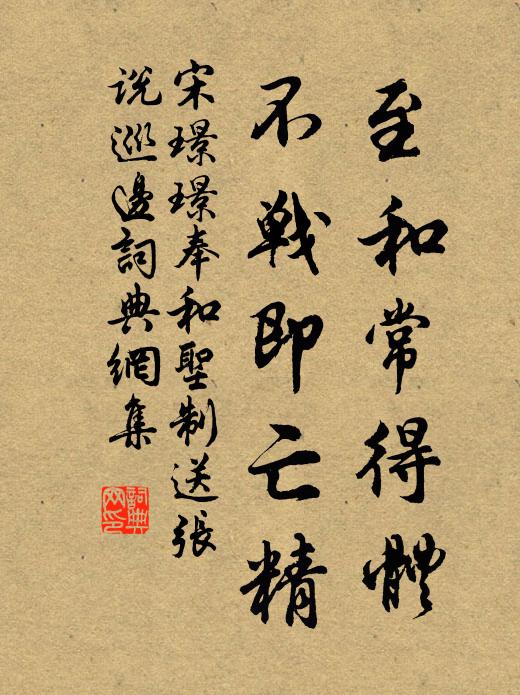 至和常得體
不戰即亡精
宋璟璟奉和聖制送張
說巡邊詞典網集
詞典
网印